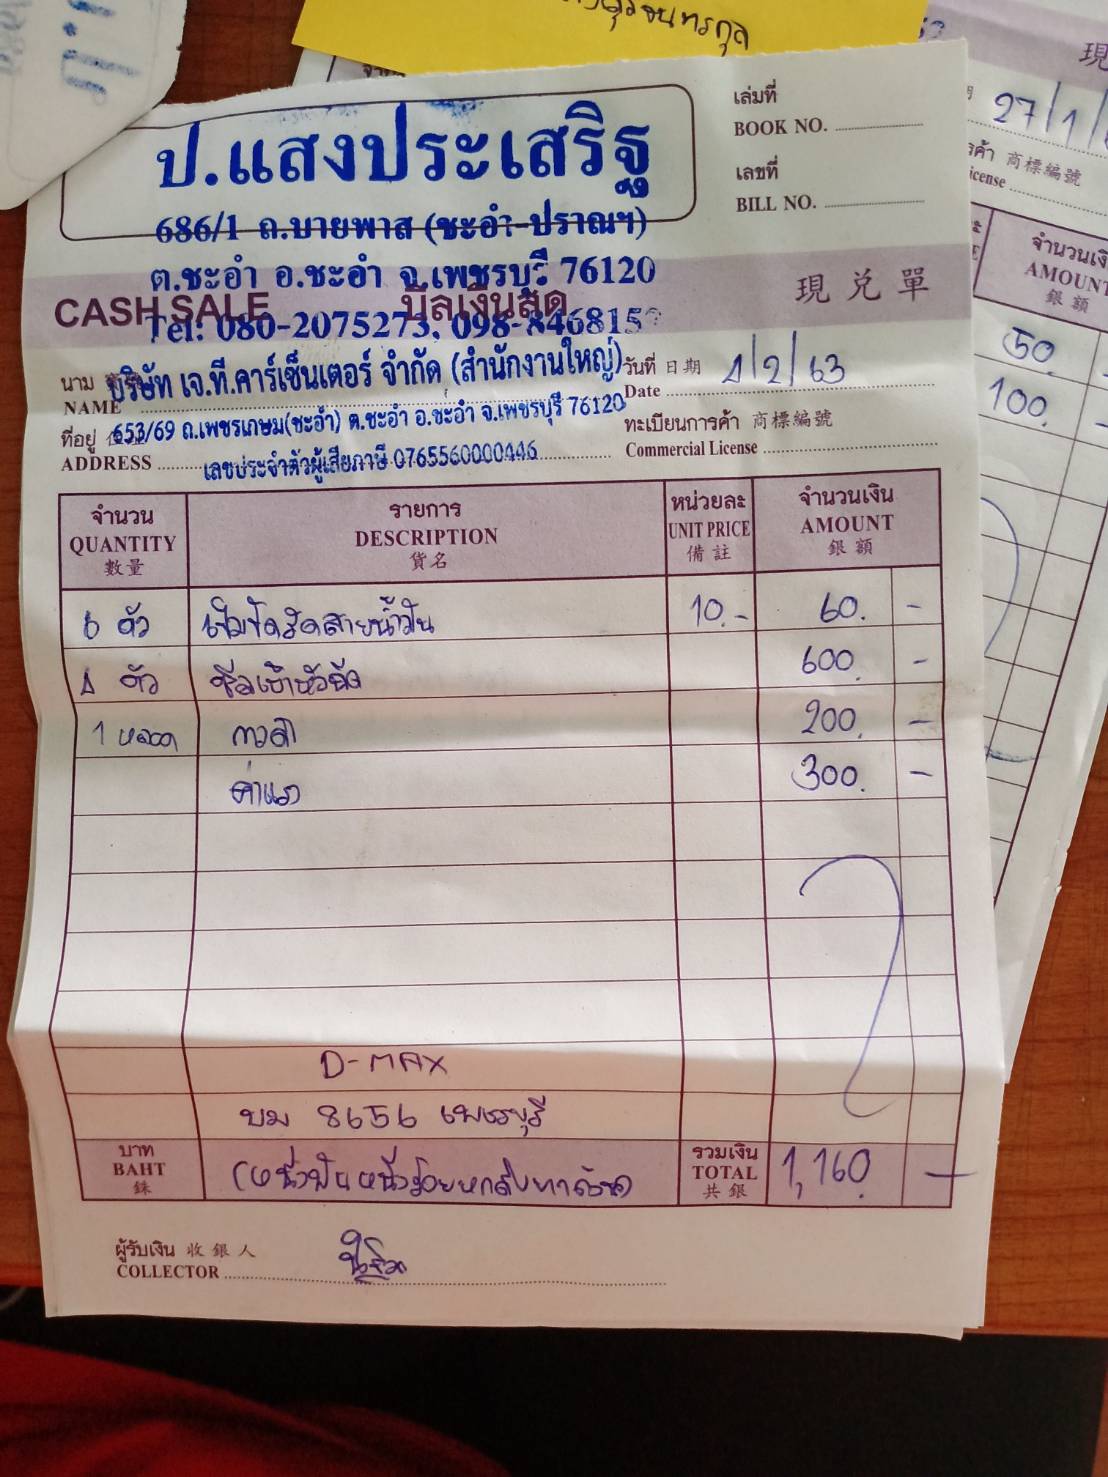 ป.แสงประเสริฐ
686/1 ถ.บายพาส (ชะอำ-ปราณฯ)
ต.ชะอำ อ.ชะอำ จ.เพชรบุรี 76120
Tel: 080-2075273, 098-8468159
เล่มที่
BOOK NO.
เลขที่
BILL NO.
CASH SALE บิลเงินสด 現兑單
นาม บริษัท เจ.ที.คาร์เซ็นเตอร์ จำกัด (สำนักงานใหญ่)
NAME
วันที่ 日期 1/2/63
Date
ที่อยู่ 653/69 ถ.เพชรเกษม(ชะอำ) ต.ชะอำ อ.ชะอำ จ.เพชรบุรี 76120
ADDRESS
เลขประจำตัวผู้เสียภาษี 0765560000446
ทะเบียนการค้า 商標編號
Commercial License
จำนวน รายการ หน่วยละ จำนวนเงิน
QUANTITY DESCRIPTION UNIT PRICE AMOUNT
數量 貨名 備註 銀額
6 ตัว เข็มขัดรัดสายน้ำมัน 10.- 60. -
1 ตัว ซีลเบ้าหัวฉีด 600 -
1 หลอด กาวดำ 200. -
ค่าแรง 300. -
D-MAX
บม 8656 เพชรบุรี
บาท
BAHT
銖
(หนึ่งพันหนึ่งร้อยหกสิบบาทถ้วน)
รวมเงิน
TOTAL
共銀
1,160. -
ผู้รับเงิน 收銀人
COLLECTOR
27/1/
商標編號
จำนวนเงิ
AMOUNT
銀額
50. -
100. -